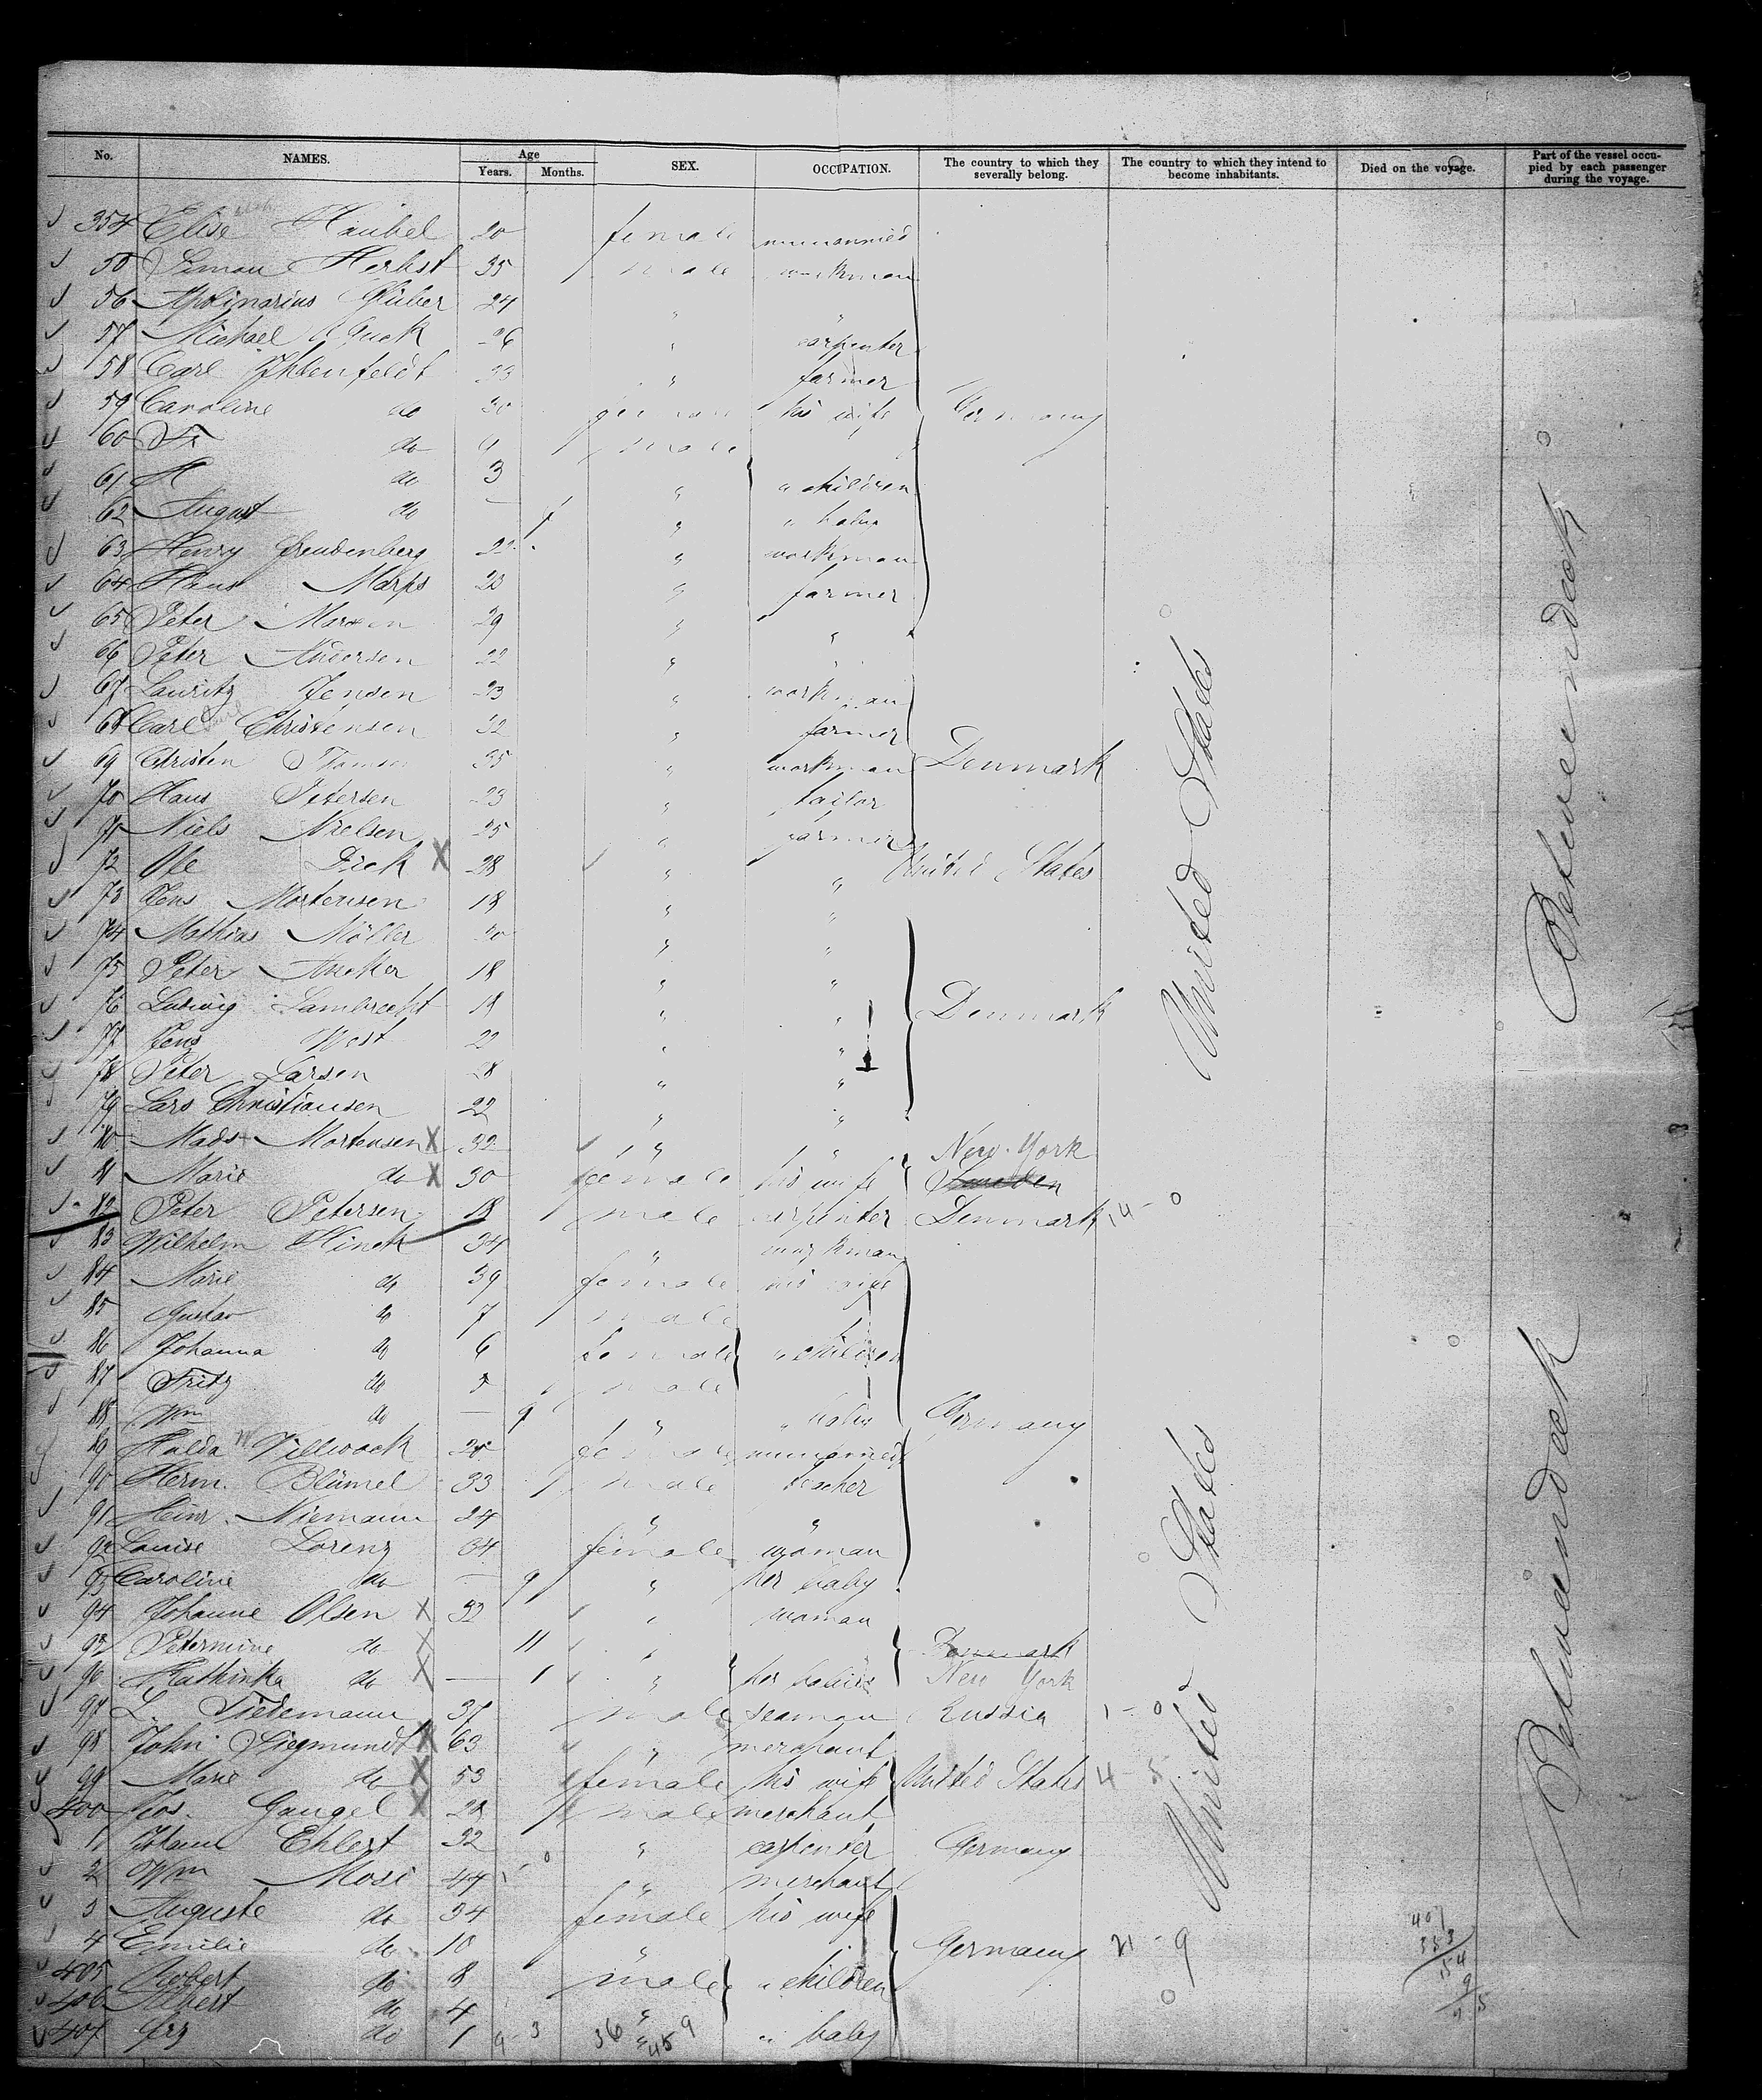 No. NAMES. Age Years. Months. SEX. OCCUPATION. The country to which they severally belong. The country to which they intend to become inhabitants. Died on the voyage. Part of the vessel occupied by each passenger during the voyage.
354 Elise Haubel 20 female unmarried
55 Simon Herbst 35 male workman
56 Apolinarius Gluber 24 " "
57 Michael 26 " carpenter
58 Carl Ihlenfeldt 33 " farmer
59 Caroline do 30 female his wife Germany
60 Fr do male
61 H do 3 " " children
62 August do — " " baby
63 Henry Freudenberg 22 " workman
64 Hans 23 " farmer
65 Peter Marxen 29 " "
66 Peter Andersen 22 " "
67 Lauritz Jensen 23 " workman
68 Carl Christensen 32 " farmer
69 Christen 35 " workman Denmark
70 Hans Petersen 23 " tailor
71 Niels Nielsen 25 " farmer
72 Dick X 28 " " United States
73 Jens Mortensen 18 " "
74 Mathias Möller 20 " "
75 Peter 18 " "
76 Ludwig Lambrecht 18 " " Denmark
77 Jens West 22 " "
78 Peter Larsen 28 " "
79 Lars Christiansen 22 " "
80 Mads Mortensen X 32 " " New York
81 Marie do X 30 female his wife Sweden
82 Peter Petersen 18 male carpenter Denmark 14 - 0
83 Wilhelm Hinck 34 " workman
84 Marie do 39 female his wife
85 Gustav do 7 male
86 Johanna do 6 female " children
87 Fritz do male
88 Wm do — 9 " " baby Germany
89 Hulda Villwock female unmarried
90 Herm. Blümel 33 male teacher
91 Heinr. Niemann 24 " "
92 Louise Lorenz 34 female woman
93 Caroline do — 9 " her baby
94 Johanne Olsen X 32 " woman
95 Petermine do X 11 " Denmark
96 Kathinka do X — 1 " her babies New York
97 L. Tiedemann 37 male seaman Russia 1 - 0
98 John Siegmundt X 63 " merchant
99 Marie do X 53 female his wife United States 4 - 5
400 Jos. Gaugel X 28 male merchant
1 Ehlert 32 " carpenter Germany
2 Wm Mose 44 " merchant
3 Auguste do 34 female his wife
4 Emilie do 10 " Germany 21 - 9
405 Robert do 8 male " children
406 Albert do 4 "
407 do 1 " " baby
United States
United States
Between deck
Between deck
407
353
54
9
45
9 - 3
36 9
45